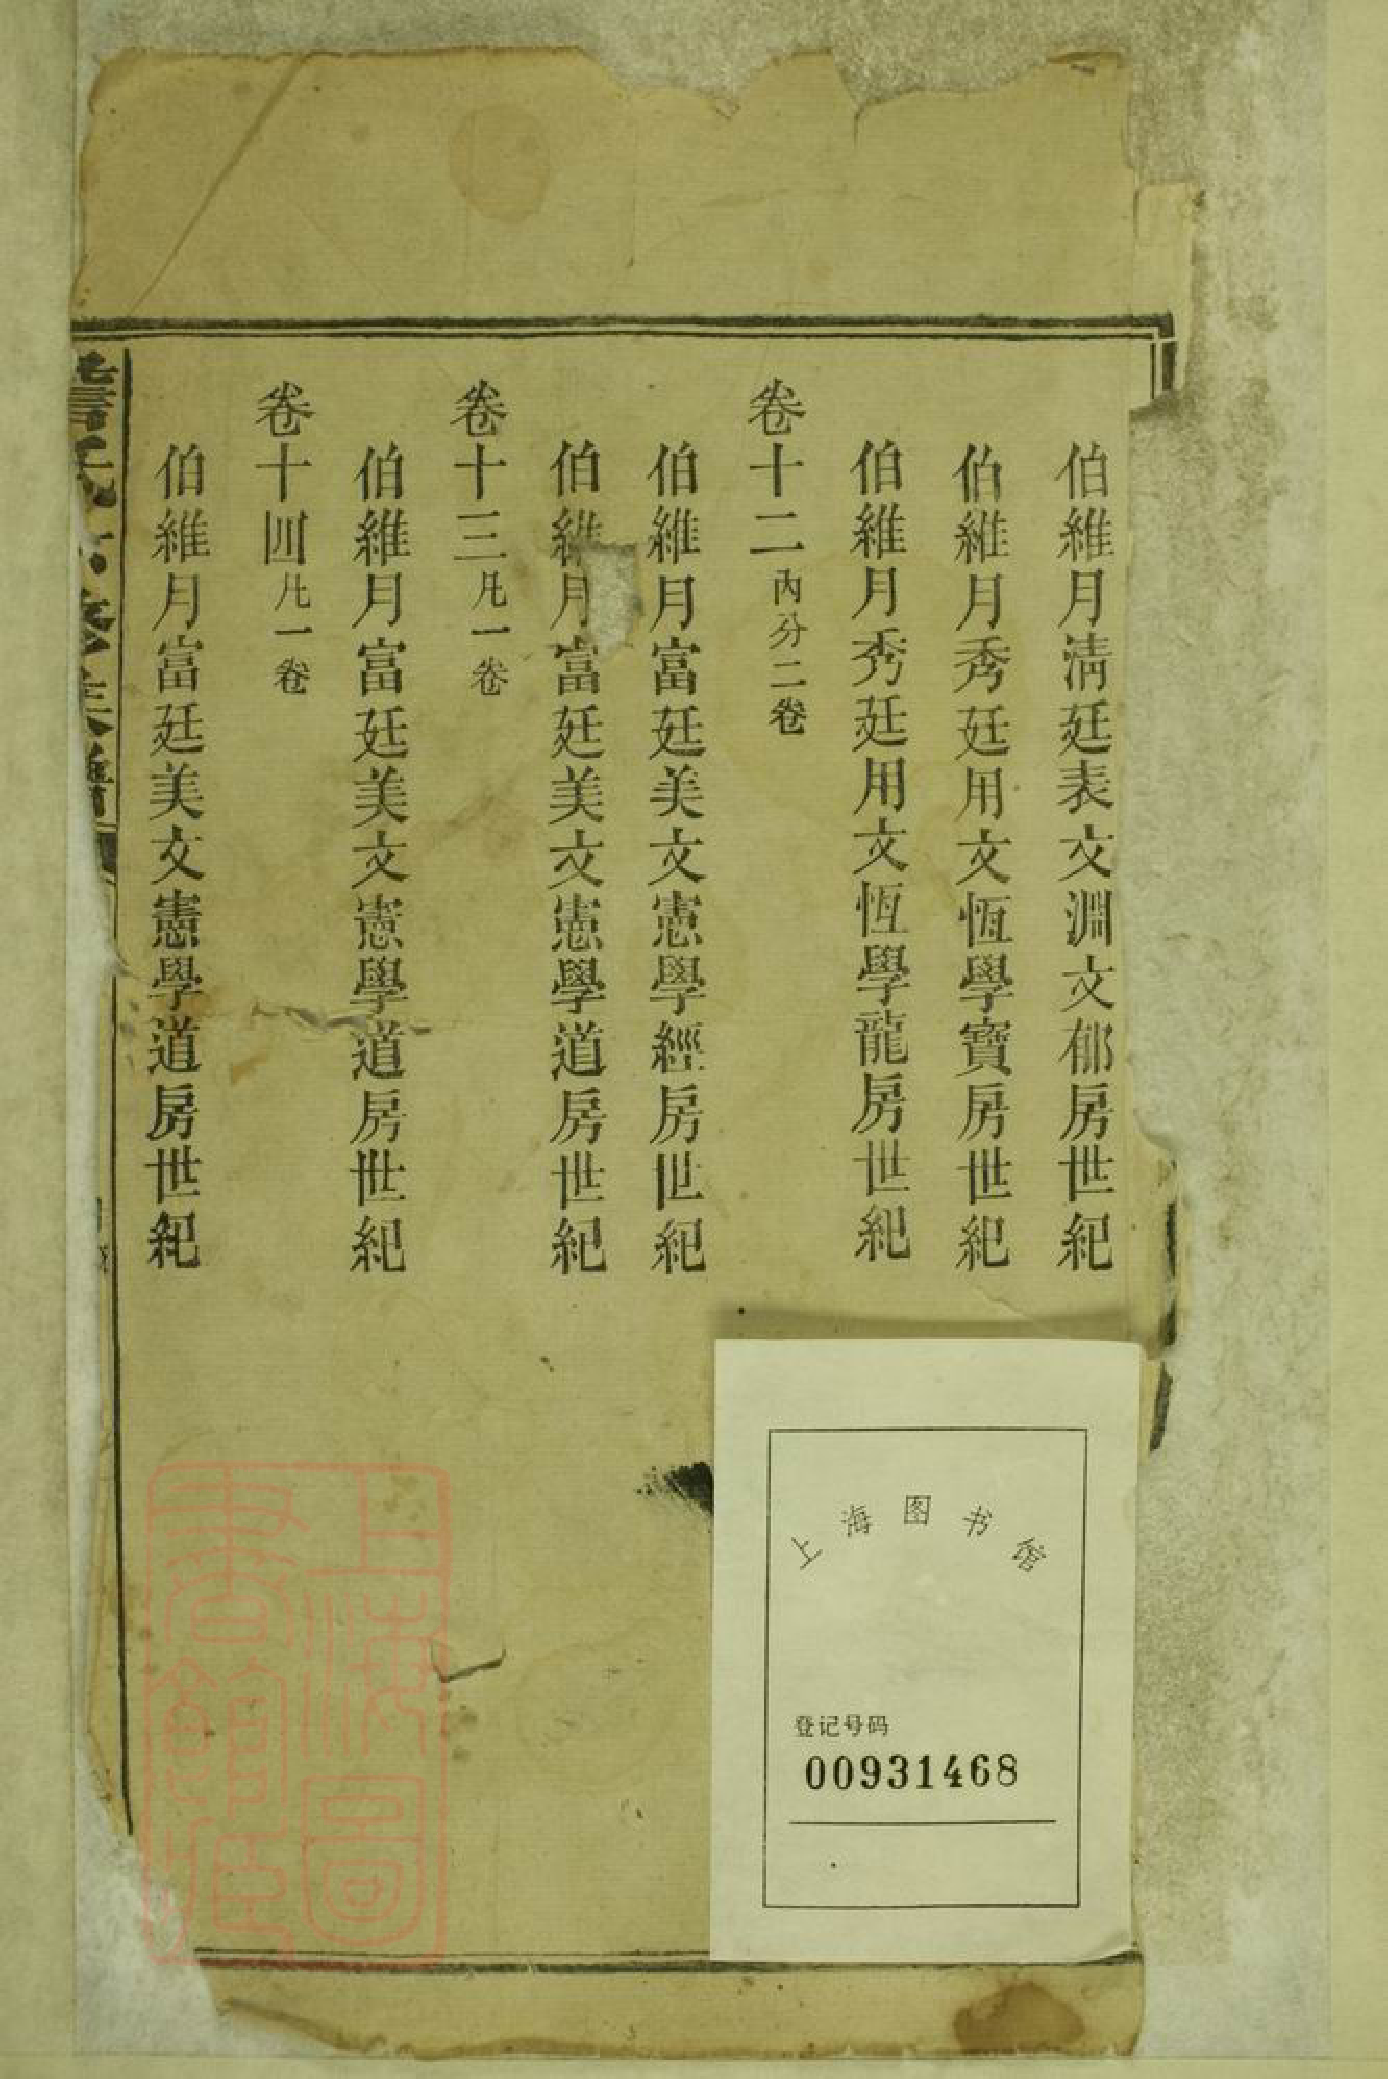 伯維月淸廷表文淵文郁房世紀
伯維月秀廷用文恆學寶房世紀
伯維月秀廷用文恆學龍房世紀
卷十二內分二卷
伯維月富廷美文憲學經房世紀
伯維月富廷美文憲學道房世紀
卷十三凡一卷
伯維月富廷美文憲學道房世紀
卷十四凡一卷
伯維月富廷美文憲學道房世紀
上海图书馆
登记号码
00931468
上海圖
書館藏